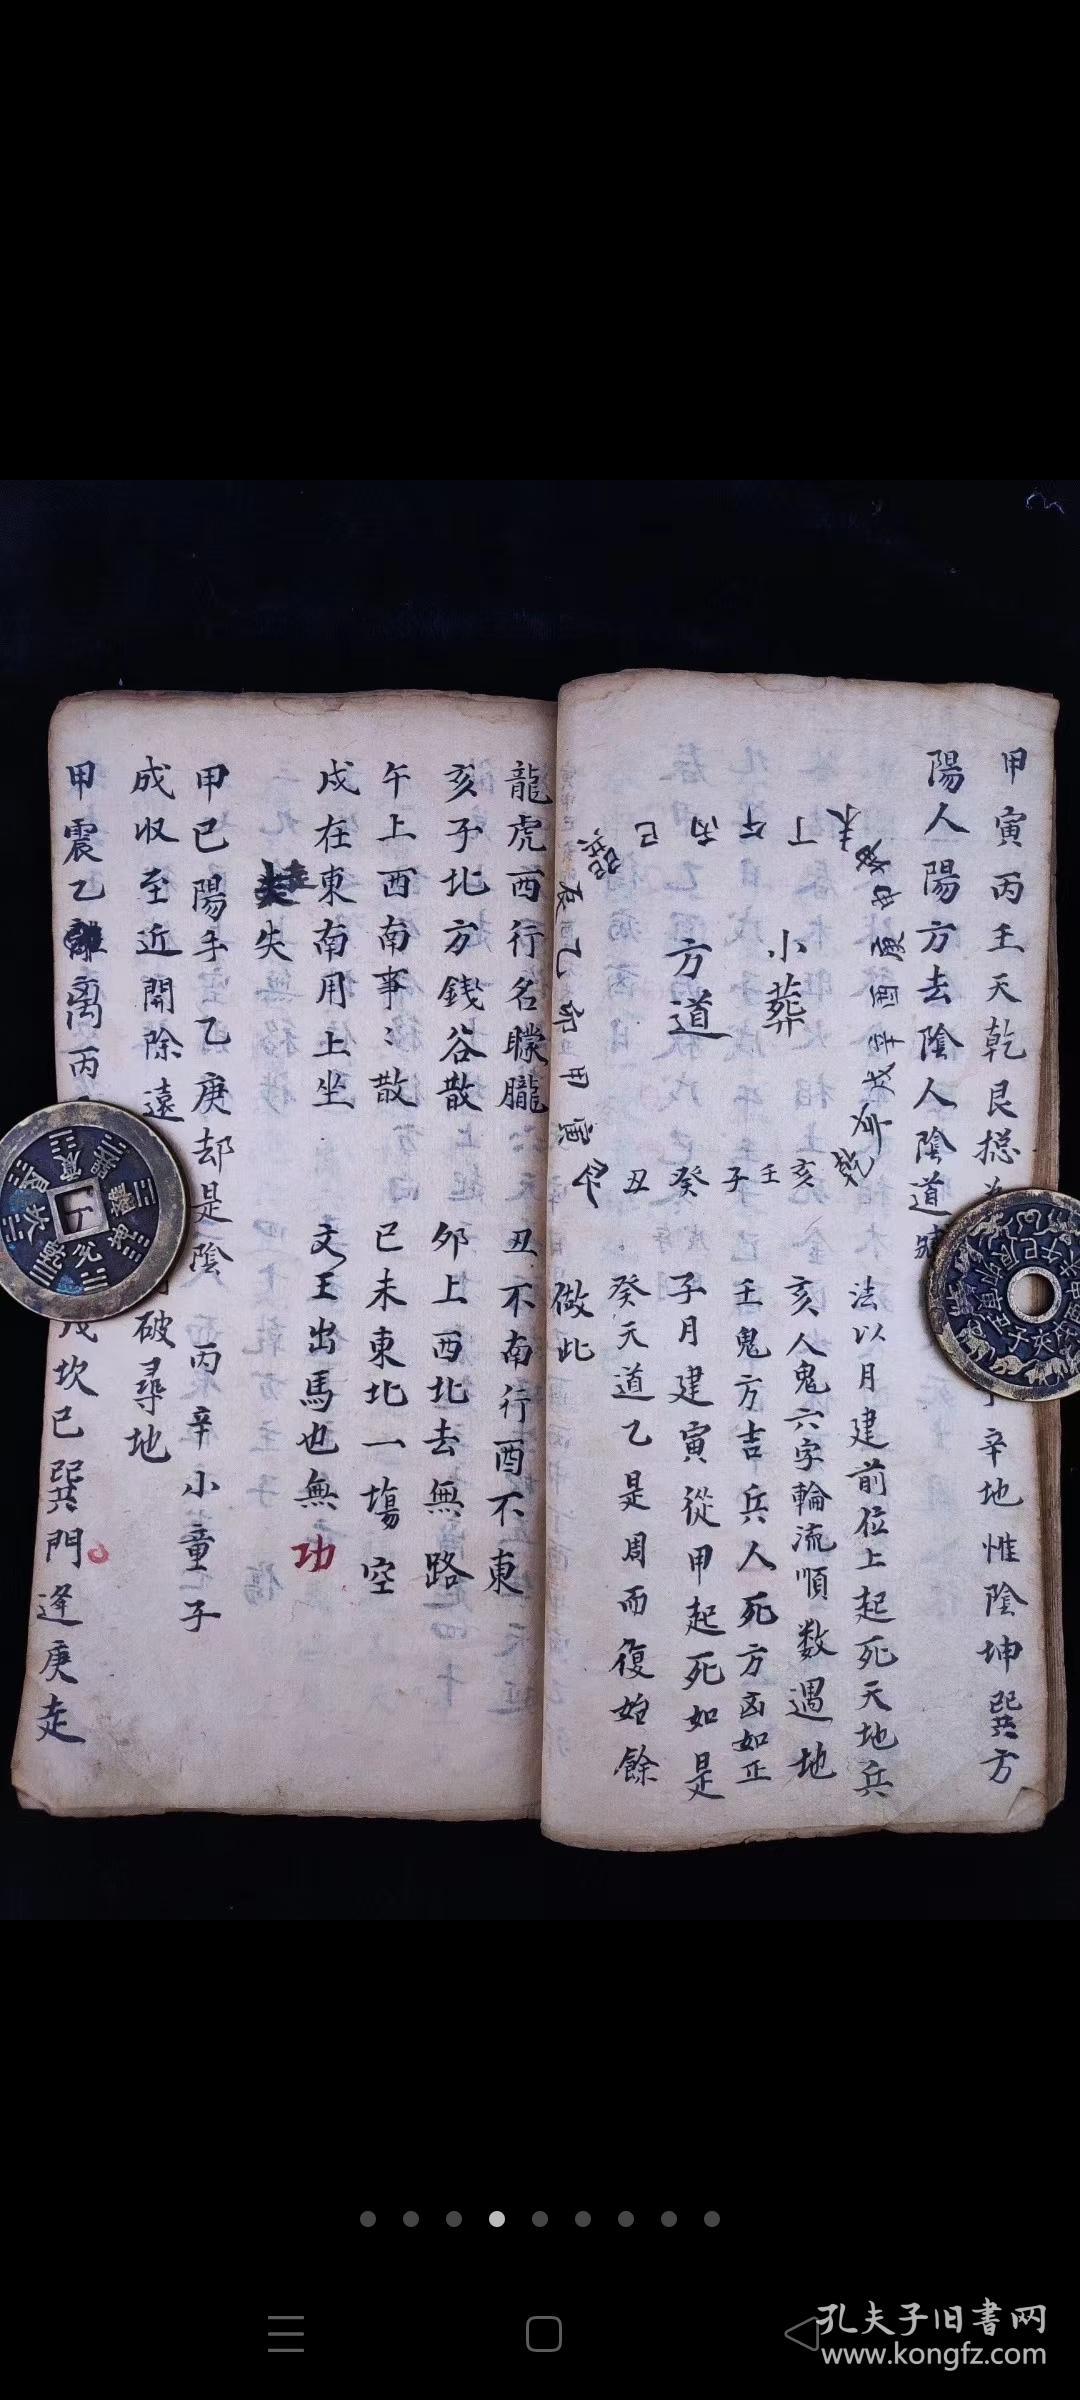 甲寅丙壬天乾艮捴
辛地惟陰坤巽方
陽人陽方去陰人陰道
小葬
方道
未
丁
午
丙
巳
巽
辰
乙
卯
甲
寅
艮
丑
癸
子
壬
亥
乾
戌
辛
酉
庚
申
坤
法以月建前位上起死天地兵
亥人鬼六字輪流順数遇地
壬鬼方吉兵人死方凶如正
子月建寅從甲起死如是
癸天道乙是周而復始餘
做此
龍虎西行名矇朧
丑不南行酉不東
亥子北方錢谷散
卯上西北去無路
午上西南事〻散
已未東北一塲空
戍在東南用上坐
文王出馬也無功
失
甲已陽手乙庚却是陰
丙辛小童子
成収至近開除遠
破尋地
甲震乙離丙
戊坎已巽門逢庚走
孔夫子旧書网
www.kongfz.com